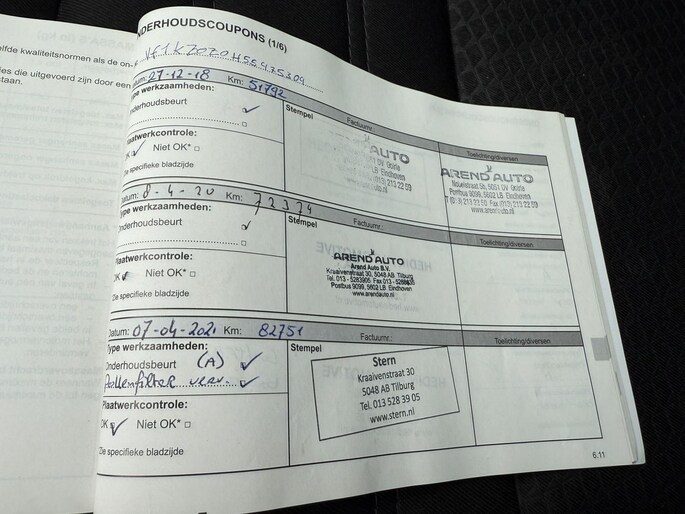 NDERHOUDSCOUPONS (1/6)
elfde kwaliteitsnormen als de on-
ies die uitgevoerd zijn door een
staan.
tum: 27-12-18 Km: 51792
Type werkzaamheden:
Onderhoudsbeurt ✓
Plaatwerkcontrole:
OK ✓ Niet OK* □
Zie specifieke bladzijde
Stempel
Factuurnr.:
Toelichting/diversen
AREND AUTO
AREND AUTO
Postbus 9099, 5602 LB Eindhoven
www.arendauto.nl
Datum: 8-4-20 Km: 72374
Type werkzaamheden:
Onderhoudsbeurt ✓
Plaatwerkcontrole:
OK ✓ Niet OK* □
Zie specifieke bladzijde
Stempel
Factuurnr.:
Toelichting/diversen
AREND AUTO
Arend Auto B.V.
Kraaivenstraat 30, 5048 AB Tilburg
Postbus 9099, 5602 LB Eindhoven
www.arendauto.nl
Datum: 07-04-2021 Km: 82751
Type werkzaamheden:
Onderhoudsbeurt (A) ✓
Pollenfilter verv. ✓
Plaatwerkcontrole:
OK ✓ Niet OK* □
Zie specifieke bladzijde
Stempel
Factuurnr.:
Toelichting/diversen
Stern
Kraaivenstraat 30
5048 AB Tilburg
Tel. 013 528 39 05
www.stern.nl
6.11